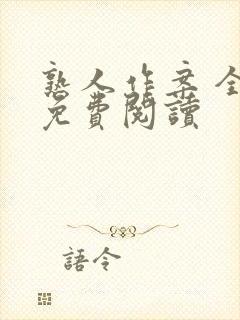 熟人作案全
免費閱讀
語令